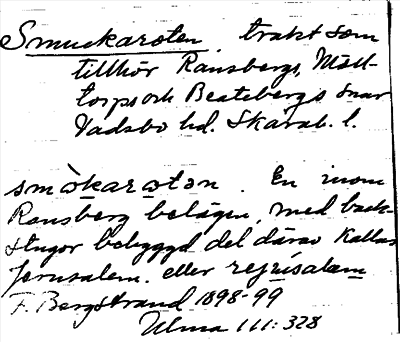 Smuckarsten, trakt som
tillhör Ransbergs, Möll-
torps och Beatebergs snar
Vadsbo hd. Skarab. l.
småkaroton. En inom
Ransberg belägen, med back-
stugor bebyggd del därav kallas
Jerusalem eller rejrúsalam
F. Bergstrand 1898-99
Ulma 111:328